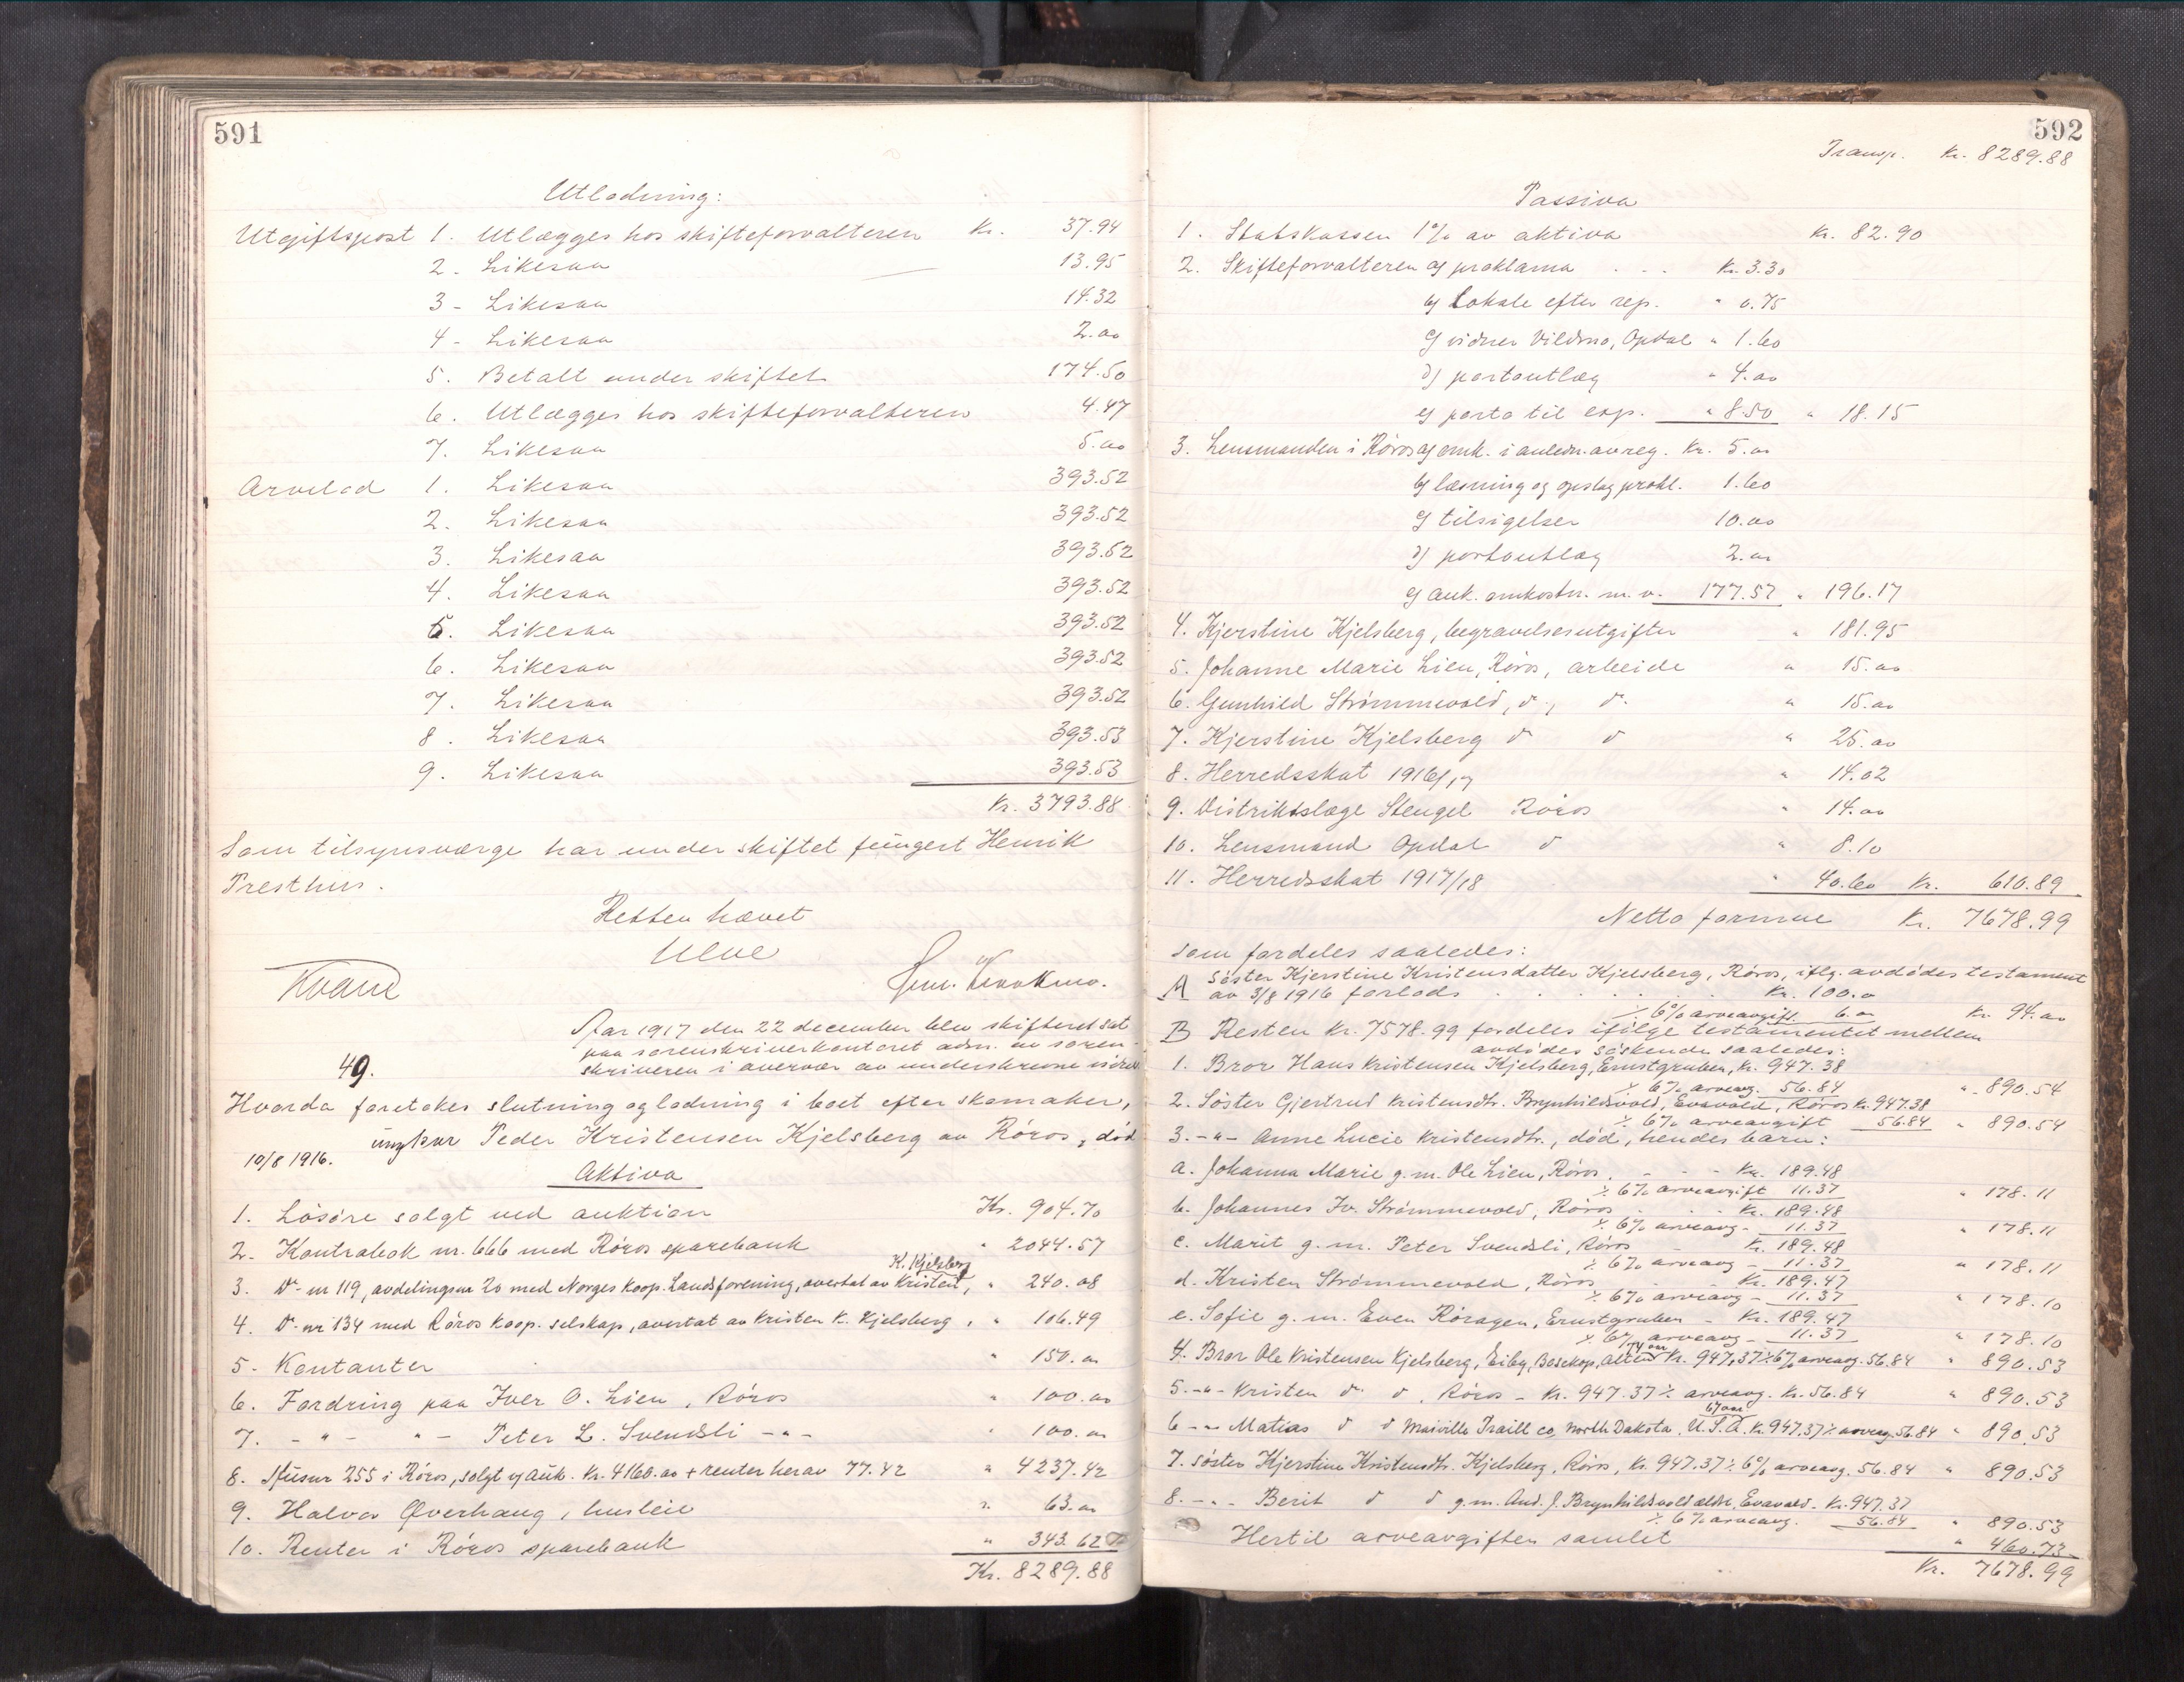 591
Utlodning:
Utgiftspost 1. Utlægges hos skifteforvalteren Kr. 37.94
2. Likesaa 13.95
3 - Likesaa 14.32
4 - Likesaa 2.00
5. Betalt under skiftet 174.50
6. Utlægges hos skifteforvalteren 4.47
7. Likesaa 5.00
Arvelod 1. Likesaa 393.52
2. Likesaa 393.52
3. Likesaa 393.52
4. Likesaa 393.52
5. Likesaa 393.52
6. Likesaa 393.52
7. Likesaa 393.52
8. Likesaa 393.53
9. Likesaa 393.53
Kr. 3793.88
Som tilsynsværge har under skiftet fungert Henrik
Presthus.
Retten hævet
Ulve
Kvam
Aar 1917 den 22 december blev skifteret sat
paa sorenskriverkontoret adm. av soren-
skriveren i overvær av underskrevne vidner
49.
Hvorda foretokes slutning og lodning i boet efter skomaker,
ungkar Peder Kristensen Kjelsberg av Röros, död
10/8 1916.
Aktiva
1. Lösöre solgt ved auktion Kr. 904.70
2. Kontrabok nr. 666 med Röros sparebank " 2044.57
3. Do nr 119, avdelingsnr 20 med Norges Koop. Landsforening, overtat av Kristen K. Kjelsberg, " 240.08
4. Do nr 134 med Röros Koop. selskap, overtat av Kristen K. Kjelsberg, " 106.49
5. Kontanter " 150.00
6. Fordring paa Iver O. Lien, Röros " 100.00
7. - " - " - Peter L. Svendsli - " - " 100.00
8. Husnr 255 i Röros, solgt v/ auk. Kr. 4160.00 + renter herav 77.42 " 4237.42
9. Halvor Øverhaug, husleie " 63.00
10. Renter i Röros sparebank " 343.62
Kr. 8289.88
592
Transp. Kr. 8289.88
Passiva
1. Statskassen 1% av aktiva Kr. 82.90
2. Skifteforvalteren a/ proklama . . . Kr. 3.30
b/ Lokale efter rep. " 0.75
c/ vidner Vildmo, Opdal " 1.60
d/ portoutlæg " 4.00
e/ porto til exp. " 8.50 " 18.15
3. Lensmanden i Röros a/ omk. i anledn. av reg. Kr. 5.00
b/ læsning og opslag prokl. 1.60
c/ tilsigelser 10.00
d/ portoutlæg 2.00
e/ auk. omkostn. m. v. 177.57 " 196.17
4. Kjerstine Kjelsberg, begravelsesutgifter " 181.95
5. Johanne Marie Lien, Röros, arbeide " 15.00
6. Gunhild Strömmevold, do, do " 15.00
7. Kjerstine Kjelsberg do do " 25.00
8. Herredsskat 1916/17 " 14.02
9. Distriktslæge Stengel Röros " 14.00
10. Lensmand Opdal do " 8.10
11. Herredsskat 1917/18 " 40.60 Kr. 610.89
Netto formue Kr. 7678.99
som fordeles saaledes:
A Söster Kjerstine Kristensdatter Kjelsberg, Röros, iflg. avdödes testament
av 3/8 1916 forlods . . . Kr. 100.00
÷ 6% arveavgift 6.00 Kr. 94.00
B Resten Kr. 7578.99 fordeles ifölge testamentet mellem
avdödes söskende saaledes:
1. Bror Hans Kristensen Kjelsberg, Ernstgruben, Kr. 947.38
÷ 6% arveavg. 56.84 " 890.54
2. Söster Gjertrud Kristensdtr. Brynhildsvold, Evavold, Röros Kr. 947.38
÷ 6% arveavgift 56.84 " 890.54
3. - " - Anne Lucie Kristensdtr., död, hendes barn:
a. Johanna Marie g. m. Ole Lien, Röros . - - - Kr. 189.48
÷ 6% arveavgift 11.37 " 178.11
b. Johannes Iv. Strömmevold, Röros - - Kr. 189.48
÷ 6% arveavg - 11.37 " 178.11
c. Marit g. m. Peter Svendsli, Röros - Kr. 189.48
÷ 6% arveavg - 11.37 " 178.11
d. Kristen Strömmevold, Röros - - Kr. 189.47
÷ 6% arveavg - 11.37 " 178.10
e. Sofie g. m. Even Röragen, Ernstgruben - Kr. 189.47
÷ 6% arveavg - 11.37 " 178.10
4. Bror Ole Kristensen Kjelsberg, Eiby, Bosekop, Alten Kr. 947,37 ÷ 6% arveavg. 56.84 " 890.53
5. - " - Kristen do do, Röros - Kr. 947.37 ÷ arveavg. Kr. 56.84 " 890.53
67 aar
6 - " - Matias do do Maiville Traill co, North Dakota, U.S.A. Kr. 947.37 ÷ arveavg. 56.84 " 890.53
7. söster Kjerstine Kristensdtr. Kjelsberg, Röros, Kr. 947.37 ÷ 6% arveavg. 56.84 " 890.53
8. - " - Berit do do g. m. And. J. Brynhildsvold ældre, Evavold - Kr. 947.37
÷ 6% arveavg. 56.84 " 890.53
Hertil arveavgiften samlet " 460.73
Kr. 7678.99